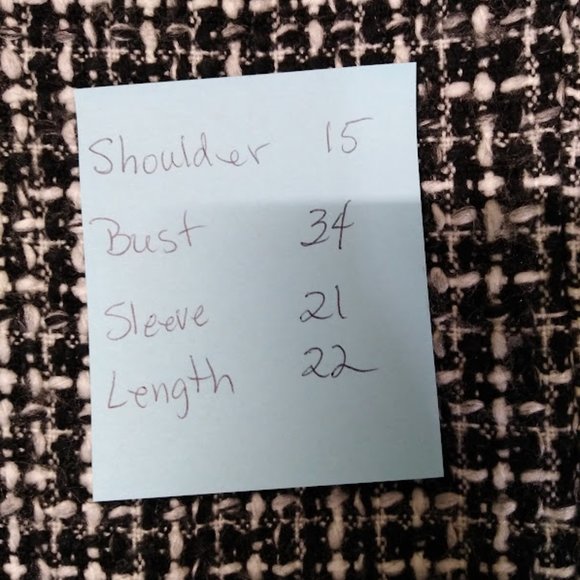 Shoulder 15
Bust 34
Sleeve 21
Length 22